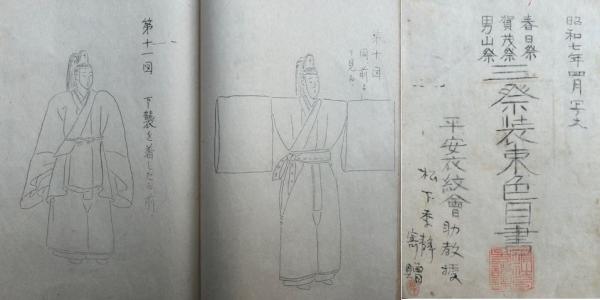 第十一図 下襲を着したる前
第十図
同前を
見る
昭和七年四月写大
春日祭
賀茂祭
男山祭
三祭装束色目書
平安衣紋會助教授
松下季静
寄贈